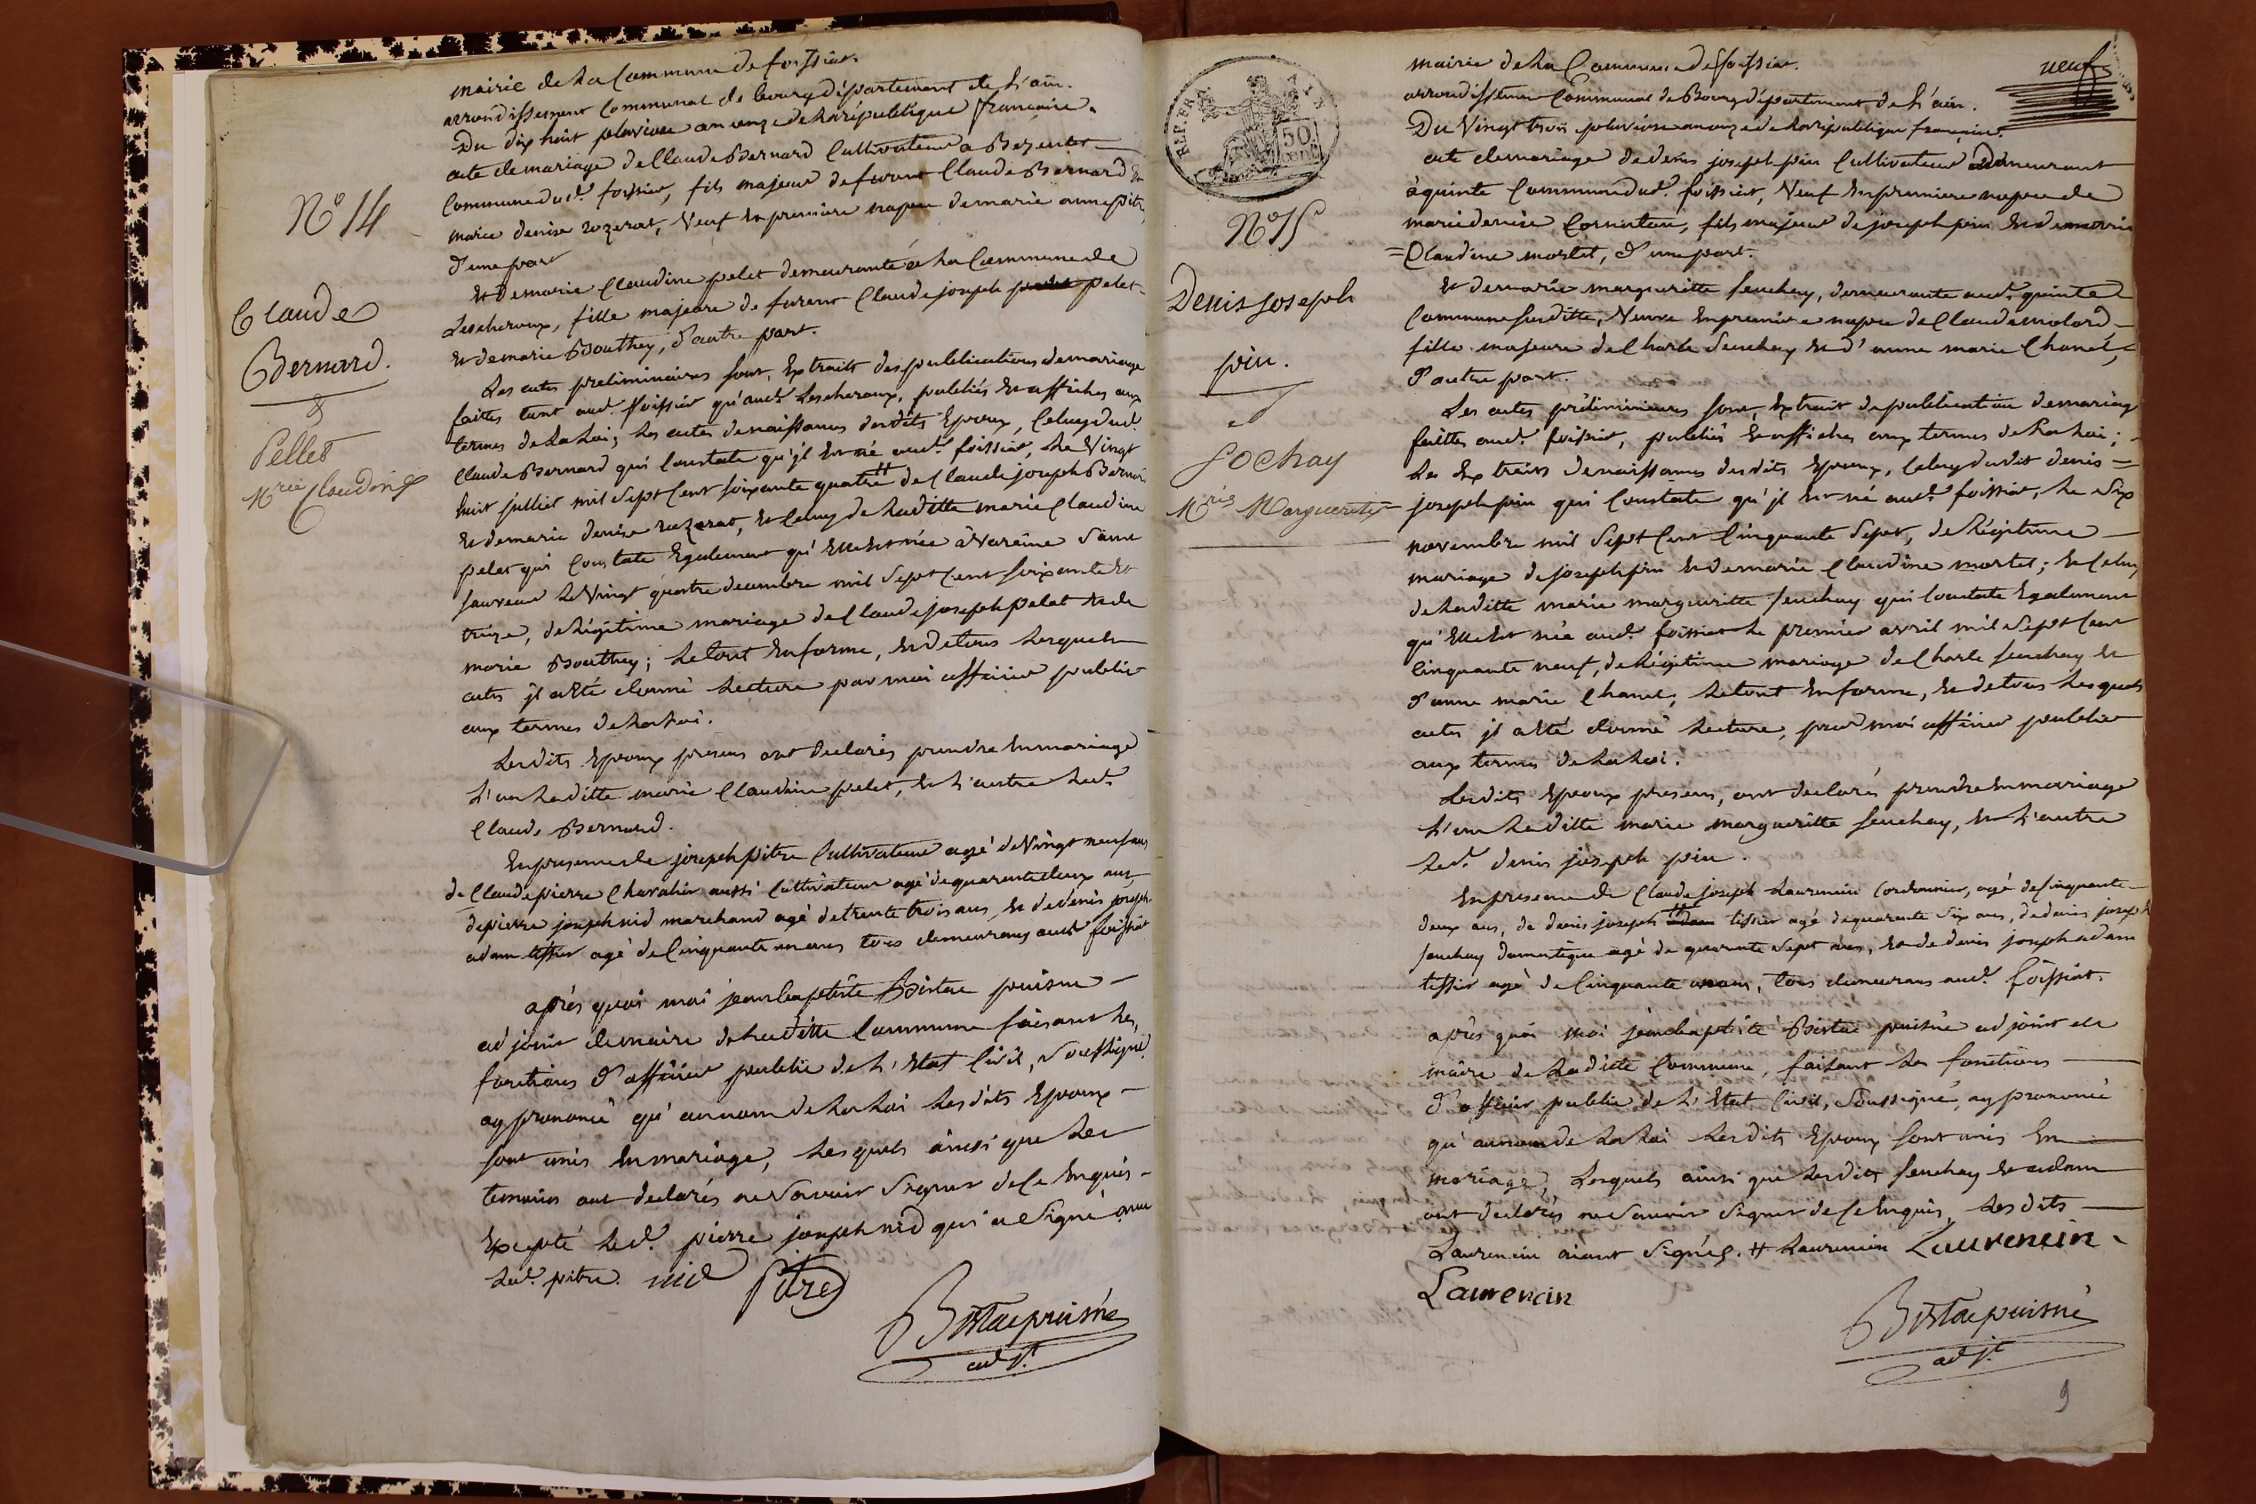 mairie de La Commune de foissiat.
arrondissement Communal de bourg département de L'ain.
Du dix huit pluviose an onze de La république française.
acte de mariage de Claude Bernard Cultivateur a
Commune dud. foissiat, fils majeur de furent Claude Bernard &
marie denise rozerat, Veuf En premiere nopce de marie anne pitre,
d'une part
Et De marie Claudine pelet demeurante á La Commune de
Lescheroux, fille majeure de furent Claude joseph pelet
Et de marie Bouthey, d'autre part.
Les actes preliminaires sont, Extraits des publications de mariage
faites tant aud. foissiat qu'aud. Lescheroux, publiés Et affichés aux
termes de La Loi; Les actes de naissances desdits Epoux, Celuy dud.
Claude Bernard qui Constate qu'jl Est né aud. foissiat, Le Vingt
huit juillet mil Sept Cent soixante quatre # de Claude joseph Bernard
Et de marie denise rozerat, Et Celuy de Laditte marie Claudine
pelet qui Constate Egalement qu'Elle Est née à Varenne Saint
Sauveur Le Vingt quatre decembre mil Sept Cent soixante Et
treize, de Légitime mariage de Claude joseph pelet Et de
marie Bouthey; Le tout En forme, Et de tous Lesquels
actes jl a Eté donné Lecture par moi officier public
aux termes de La Loi.
Lesdits Epoux presens ont declarés prendre En mariage
L'un Laditte marie Claudine pelet, Et L'autre Led.
Claude Bernard.
En presence de joseph pitre Cultivateur agé de Vingt neuf ans
de Claude pierre Chavalin aussi Cultivateur agé de quarante deux ans,
de pierre joseph nid marchand agé de trente trois ans, Et de denis joseph
adam tissier agé de Cinquante un ans tous demeurans aud. foissiat
après quoi moi jean baptiste Bistac puisne
adjoint de maire de Laditte Commune faisant Les
fonctions d'officier public de L'Etat Civil, Soussigné,
ay prononcé qu'au nom de La Loi Lesdits Epoux
sont unis En mariage, Lesquels ainsi que Les
temoins ont declarés ne Savoir Signer de Ce Enquis
Excepté Led. pierre joseph nid qui a Signé avec
Led. pitre. nid Pitre
Bistac puisné
adjt.
N° 14
Claude
Bernard.
&
Pellet
Mrie Claudine
neuf
mairie de La Commune de foissiat.
arrondissement Communal de Bourg département de L'ain.
Du Vingt trois pluviose an onze de La république française.
acte de mariage de denis joseph pin Cultivateur demeurant
à quinte Commune dud. foissiat, Veuf En premiere nopce de
marie denise Cornaton, fils majeur de joseph pin Et de marie
Claudine mortet, d'une part.
Et de marie margueritte feuchay, demeurante aud. quinte
Commune susditte, Veuve En premiere nopce de Claude molard
fille majeure de Charle feuchay Et d'anne marie Chanel,
d'autre part.
Les actes préliminaires sont, Extrait de publication de mariage
faittes aud. foissiat, publiés Et affichés aux termes de La Loi;
Les Extraits de naissances desdits Epoux, Celuy dudit denis
joseph pin qui Constate qu'jl Est né aud. foissiat, Le Six
novembre mil Sept Cent Cinquante Sept, de Légitime
mariage de joseph pin Et de marie Claudine mortet; Et Celuy
de Laditte marie margueritte feuchay qui Constate Egalement
qu'Elle Est née aud. foissiat Le premier avril mil Sept Cent
Cinquante neuf, de Légitime mariage de Charle feuchay Et
d'anne marie Chanel; Le tout En forme, Et de tous Lesquels
actes jl a Eté donné Lecture, par moi officier public
aux termes de La Loi.
Lesdits Epoux presens, ont declarés prendre En mariage
L'un Laditte marie margueritte feuchay, Et L'autre
Led. denis joseph pin.
En presence de Claude joseph Laurencin Cordonnier, agé de Cinquante
deux ans, de denis joseph # tissier agé de quarante Six ans, de denis joseph
feuchay domestique agé de quarante Sept ans, Et de denis joseph adam
tissier agé de Cinquante un ans, tous demeurans aud. foissiat.
après quoi moi jean baptiste Bistac puisné adjoint de
maire de Ladicte Commune, faisant Les fonctions
d'officier public de L'Etat Civil, Soussigné, ay prononcé
qu'au nom de La Loi Lesdits Epoux sont unis En
mariage, Lesquels ainsi que Lesdits feuchay Et adam
ont declarés ne Savoir Signer de Ce Enquis, Lesdits
Laurencin aiant Signés. # Laurencin Laurencin
Laurencin
Bistac puisné
adjt.
9
REP. FRA.
50
N° 15
Denis Joseph
pin.
et
fochay
Mrie Margueritte